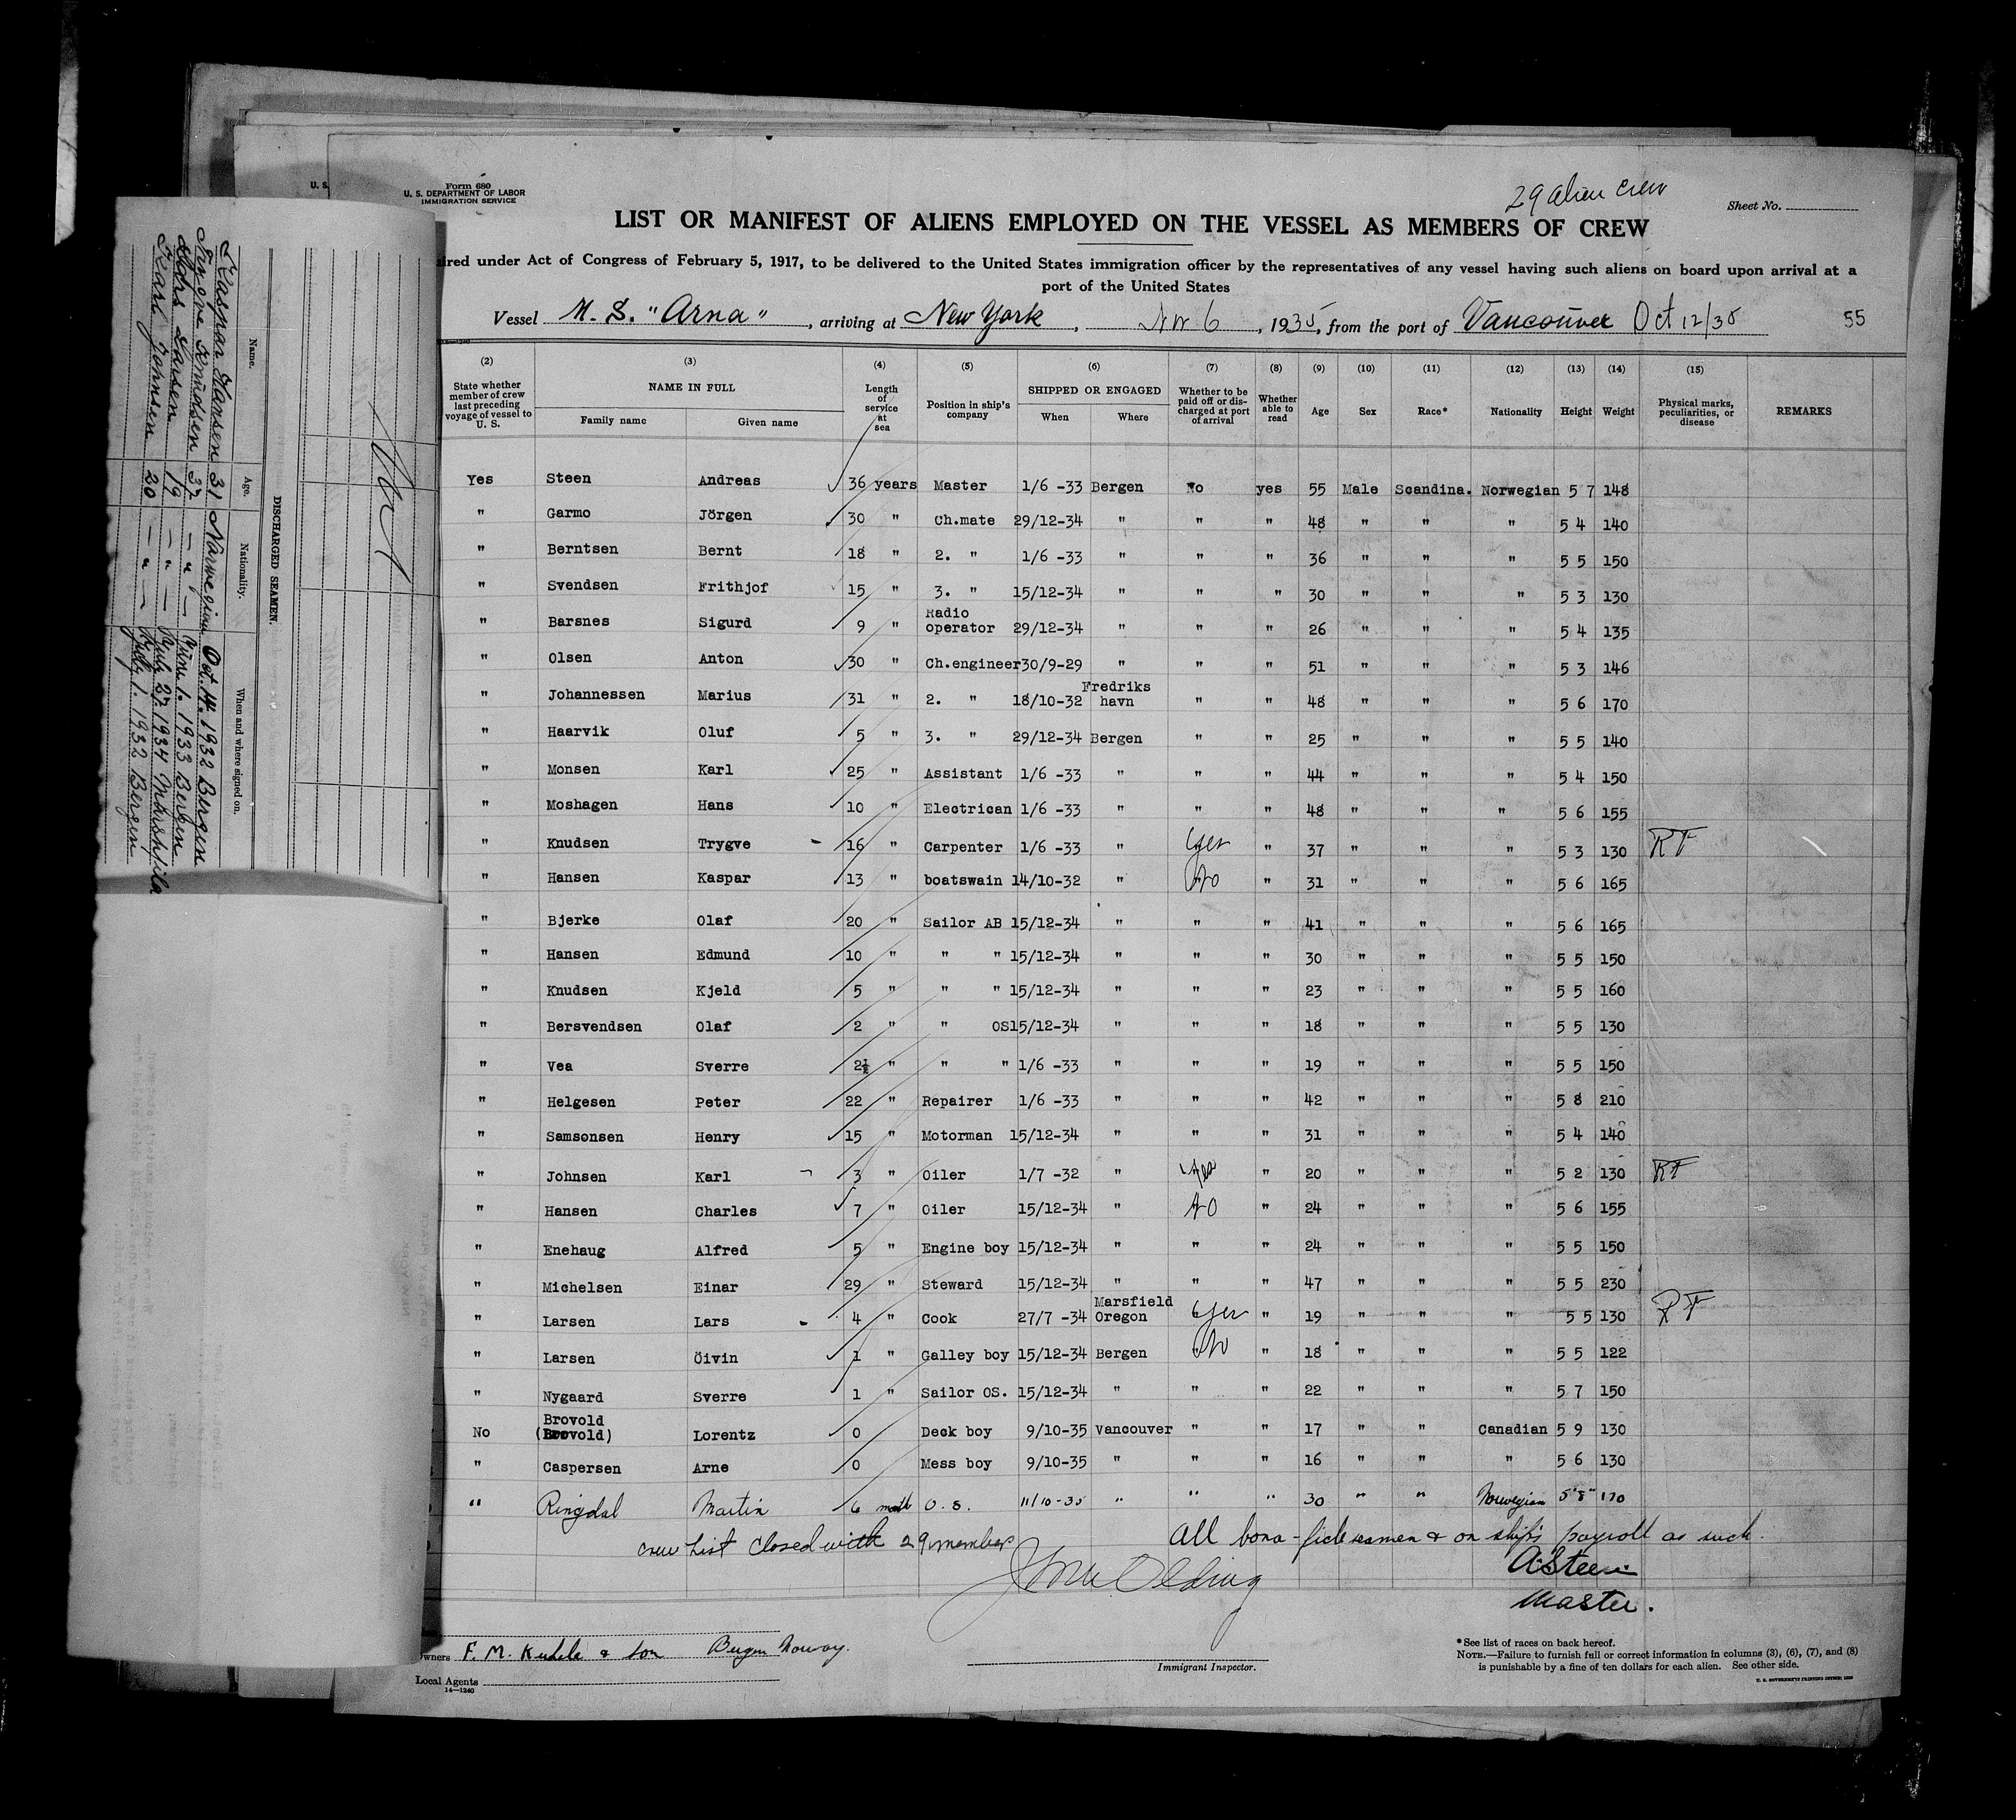 U. S.
Form 680
U. S. DEPARTMENT OF LABOR
IMMIGRATION SERVICE
29 alien crew
Sheet No.
LIST OR MANIFEST OF ALIENS EMPLOYED ON THE VESSEL AS MEMBERS OF CREW
ired under Act of Congress of February 5, 1917, to be delivered to the United States immigration officer by the representatives of any vessel having such aliens on board upon arrival at a
port of the United States
Vessel M. S. "Arna", arriving at New York, Nov 6, 1935, from the port of Vancouver Oct 12/35 55
(2) (3) (4) (5) (6) (7) (8) (9) (10) (11) (12) (13) (14) (15)
State whether member of crew last preceding voyage of vessel to U. S. NAME IN FULL Family name Given name Length of service at sea Position in ship's company SHIPPED OR ENGAGED When Where Whether to be paid off or discharged at port of arrival Whether able to read Age Sex Race* Nationality Height Weight Physical marks, peculiarities, or disease REMARKS
Yes Steen Andreas 36 years Master 1/6 -33 Bergen No yes 55 Male Scandina. Norwegian 5 7 148
" Garmo Jörgen 30 " Ch.mate 29/12-34 " " " 48 " " " 5 4 140
" Berntsen Bernt 18 " 2. " 1/6 -33 " " " 36 " " " 5 5 150
" Svendsen Frithjof 15 " 3. " 15/12-34 " " " 30 " " " 5 3 130
" Barsnes Sigurd 9 " Radio operator 29/12-34 " " " 26 " " " 5 4 135
" Olsen Anton 30 " Ch.engineer 30/9-29 " " " 51 " " " 5 3 146
" Johannessen Marius 31 " 2. " 18/10-32 Fredriks havn " " 48 " " " 5 6 170
" Haarvik Oluf 5 " 3. " 29/12-34 Bergen " " 25 " " " 5 5 140
" Monsen Karl 25 " Assistant 1/6 -33 " " " 44 " " " 5 4 150
" Moshagen Hans 10 " Electrican 1/6 -33 " " " 48 " " " 5 6 155
" Knudsen Trygve - 16 " Carpenter 1/6 -33 " Yes " 37 " " " 5 3 130 RF
" Hansen Kaspar 13 " boatswain 14/10-32 " No " 31 " " " 5 6 165
" Bjerke Olaf 20 " Sailor AB 15/12-34 " " " 41 " " " 5 6 165
" Hansen Edmund 10 " " " 15/12-34 " " " 30 " " " 5 5 150
" Knudsen Kjeld 5 " " " 15/12-34 " " " 23 " " " 5 5 160
" Bersvendsen Olaf 2 " " OS 15/12-34 " " " 18 " " " 5 5 130
" Vea Sverre 2½ " " " 1/6 -33 " " " 19 " " " 5 5 150
" Helgesen Peter 22 " Repairer 1/6 -33 " " " 42 " " " 5 8 210
" Samsonsen Henry 15 " Motorman 15/12-34 " " " 31 " " " 5 4 140
" Johnsen Karl - 3 " Oiler 1/7 -32 " Yes " 20 " " " 5 2 130 RF
" Hansen Charles 7 " Oiler 15/12-34 " No " 24 " " " 5 6 155
" Enehaug Alfred 5 " Engine boy 15/12-34 " " " 24 " " " 5 5 150
" Michelsen Einar 29 " Steward 15/12-34 " " " 47 " " " 5 5 230
" Larsen Lars - 4 " Cook 27/7 -34 Marsfield Oregon Yes " 19 " " " 5 5 130 RF
" Larsen Öivin 1 " Galley boy 15/12-34 Bergen No " 18 " " " 5 5 122
" Nygaard Sverre 1 " Sailor OS. 15/12-34 " " " 22 " " " 5 7 150
No Brovold (Brovold) Lorentz 0 Deck boy 9/10-35 Vancouver " " 17 " " Canadian 5 9 130
" Caspersen Arne 0 Mess boy 9/10-35 " " " 16 " " " 5 6 130
" Ringdal Martin 6 mnth O. S. 11/10-35 " " " 30 " " Norwegian 5'8" 170
Crew List Closed with 29 members
All bona-fide seamen & on ship's payroll as such.
A. Steen
Master.
Owners F. M. & Son Bergen Norway.
Local Agents
14—1240
Immigrant Inspector.
*See list of races on back hereof.
NOTE.—Failure to furnish full or correct information in columns (3), (6), (7), and (8)
is punishable by a fine of ten dollars for each alien. See other side.
DISCHARGED SEAMEN.
Name. Age. Nationality. When and where signed on.
Kaspar Hansen 31 Norwegian Oct. 14. 1932 Bergen
Trygve Knudsen 37 — " — June 1. 1933 Bergen
Lars Larsen 19 — " — July 27. 1934
Karl Johnsen 20 — " — July 1. 1932 Bergen